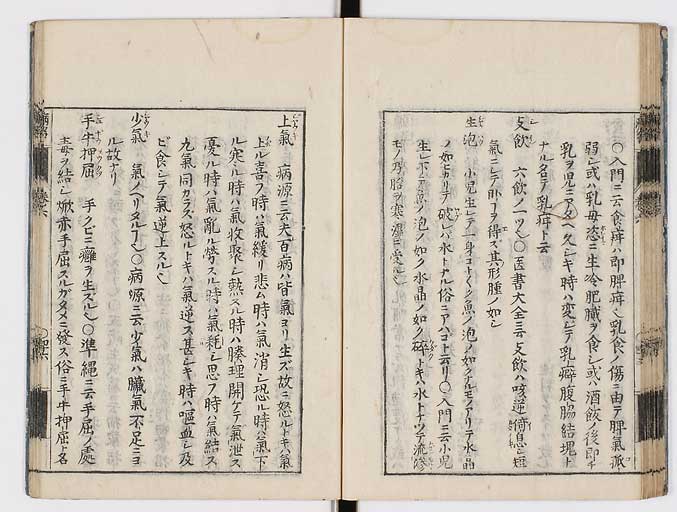 ○入門ニ云食痺ハ即脾痺也乳食ノ傷ニ由テ脾氣孤
弱シ或ハ乳母恣ニ生冷肥膩ヲ食シ或ハ酒飲ノ後即チ
乳ヲ児ニアタヘ久シキ時ハ変シテ乳癖腹脇結塊ト
ナル名テ乳癖ト云
支飲 六飲ノ一ツ也○医書大全ニ云支飲ハ咳逆倚息シ短
氣ニシテ臥ヲ得ズ其形腫ノ如シ
生泡 小児生レテ一身コトゴトク魚ノ泡ノ如クナルモノアリテ水晶
ノ如ニアリテ破レバ水トナル俗ニアハゴト云リ○入門ニ云小児
生レ下テ魚ノ泡ノ如ク水晶ノ如ク碎トキハ水トナツテ流滲
モノ乃胎ヲ寒濕ニ受ル也
上氣 病源ニ云夫百病ハ皆氣ヨリ生ズ故ニ怒ルトキハ氣
上ル喜フ時ハ氣緩リ悲ム時ハ氣消シ恐ル時ハ氣下
ル寒ル時ハ氣收聚シ熱スル時ハ腠理開ケテ氣泄ス
憂ル時ハ氣亂ル勞スル時ハ氣耗シ思フ時ハ氣結ス
九氣同カラズ怒ルトキハ氣逆ス甚シキ時ハ嘔血シ及
ビ食シテ氣逆上スル也
少氣 氣ノヘリタル丁也○病源ニ云少氣ハ臓氣不足ニヨ
ル故ナリ
手牛押屈 手ノクビニ癰ヲ生ズル也○準縄ニ云手屈ノ處
毒ヲ結シ焮赤手屈スルガタメニ發ス俗ニ手牛押屈ト名